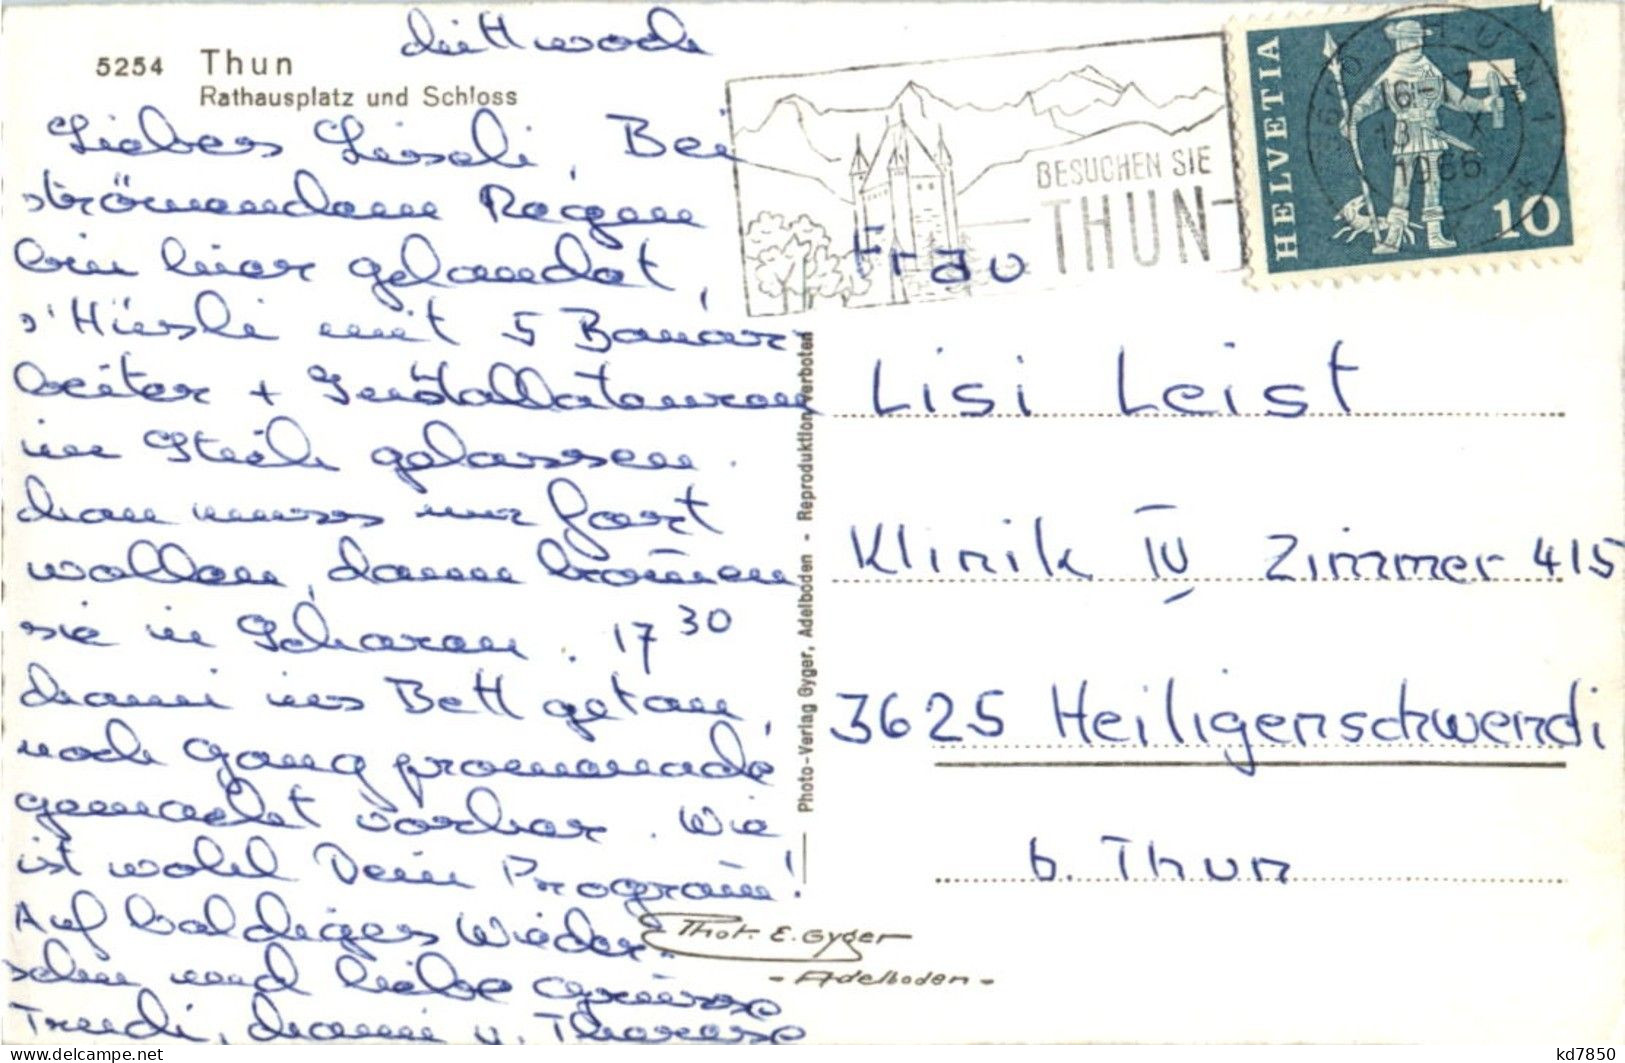 Mittwoch
5254 Thun
Rathausplatz und Schloss
Liebes Liseli, Bei
strömendem Regen
bin hier gelandet,
s'Hüsli mit 5 Bauar-
beiter + Installateuren
im Stich gelassen.
man muss nur fort
wollen, dann kommen
sie in Scharen. 17 30
Mami ins Bett getan,
noch Gang promenade
gemacht vorher. Wie
ist wohl Dein Program!
Auf baldiges Wieder-
sehn und liebe Grüsse
Trudi, Mami u. Therese
BESUCHEN SIE
THUN
HELVETIA
10
THUN 1
1966
Frau
Lisi Leist
Klinik IV Zimmer 415
3625 Heiligenschwendi
b. Thun
Photo-Verlag Gyger, Adelboden - Reproduktion verboten
Phot. E. Gyger
- Adelboden -
kd7850